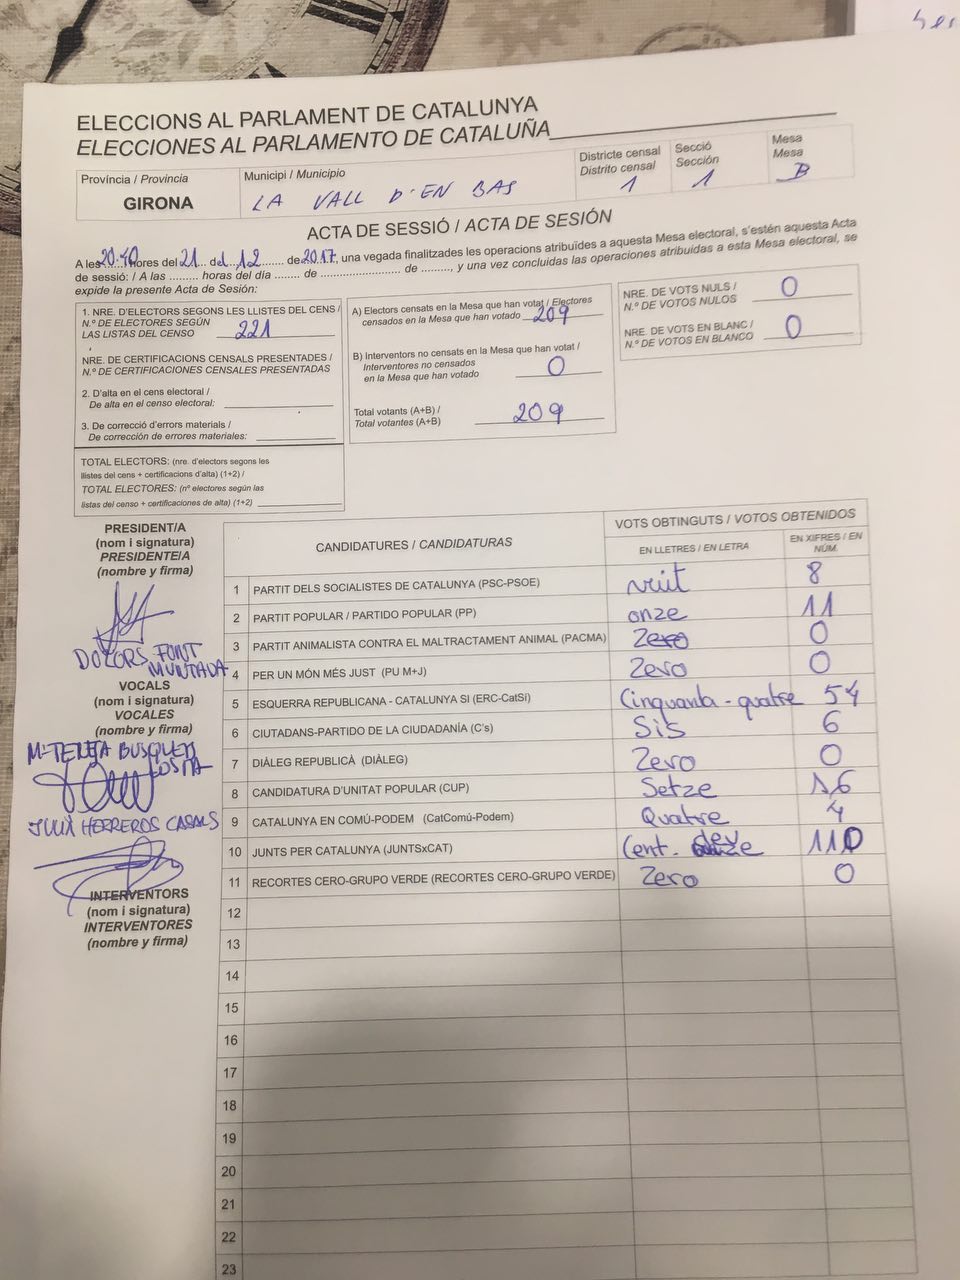 ELECCIONS AL PARLAMENT DE CATALUNYA
ELECCIONES AL PARLAMENTO DE CATALUÑA
Província / Provincia
GIRONA
Municipi / Municipio
LA VALL D'EN BAS
Districte censal
Distrito censal
1
Secció
Sección
1
Mesa
Mesa
B
ACTA DE SESSIÓ / ACTA DE SESIÓN
A les 20:40 hores del 21 del 12 de 2017, una vegada finalitzades les operacions atribuïdes a aquesta Mesa electoral, s'estén aquesta Acta
de sessió: / A las ......... horas del día ........ de ......................... de ........, y una vez concluidas las operaciones atribuidas a esta Mesa electoral, se
expide la presente Acta de Sesión:
1. NRE. D'ELECTORS SEGONS LES LLISTES DEL CENS /
N.º DE ELECTORES SEGÚN
LAS LISTAS DEL CENSO 221
NRE. DE CERTIFICACIONS CENSALS PRESENTADES /
N.º DE CERTIFICACIONES CENSALES PRESENTADAS
2. D'alta en el cens electoral /
De alta en el censo electoral:
3. De correcció d'errors materials /
De corrección de errores materiales:
TOTAL ELECTORS: (nre. d'electors segons les
llistes del cens + certificacions d'alta) (1+2) /
TOTAL ELECTORES: (nº electores según las
listas del censo + certificaciones de alta) (1+2)
A) Electors censats en la Mesa que han votat / Electores
censados en la Mesa que han votado 209
B) Interventors no censats en la Mesa que han votat /
Interventores no censados
en la Mesa que han votado 0
Total votants (A+B) /
Total votantes (A+B) 209
NRE. DE VOTS NULS /
N.º DE VOTOS NULOS 0
NRE. DE VOTS EN BLANC /
N.º DE VOTOS EN BLANCO 0
PRESIDENT/A
(nom i signatura)
PRESIDENTE/A
(nombre y firma)
DOLORS FONT
MUNTADA
VOCALS
(nom i signatura)
VOCALES
(nombre y firma)
Mª TERESA BUSQUETS
COSTA
JULIÀ HERREROS CASALS
INTERVENTORS
(nom i signatura)
INTERVENTORES
(nombre y firma)
CANDIDATURES / CANDIDATURAS
VOTS OBTINGUTS / VOTOS OBTENIDOS
EN LLETRES / EN LETRA
EN XIFRES / EN
NÚM.
1 PARTIT DELS SOCIALISTES DE CATALUNYA (PSC-PSOE) vuit 8
2 PARTIT POPULAR / PARTIDO POPULAR (PP) onze 11
3 PARTIT ANIMALISTA CONTRA EL MALTRACTAMENT ANIMAL (PACMA) Zero 0
4 PER UN MÓN MÉS JUST (PU M+J) Zero 0
5 ESQUERRA REPUBLICANA - CATALUNYA SI (ERC-CatSí) Cinquanta-quatre 54
6 CIUTADANS-PARTIDO DE LA CIUDADANÍA (C's) Sis 6
7 DIÀLEG REPUBLICÀ (DIÀLEG) Zero 0
8 CANDIDATURA D'UNITAT POPULAR (CUP) Setze 16
9 CATALUNYA EN COMÚ-PODEM (CatComú-Podem) Quatre 4
10 JUNTS PER CATALUNYA (JUNTSxCAT) Cent. deu 110
11 RECORTES CERO-GRUPO VERDE (RECORTES CERO-GRUPO VERDE) Zero 0
12
13
14
15
16
17
18
19
20
21
22
23